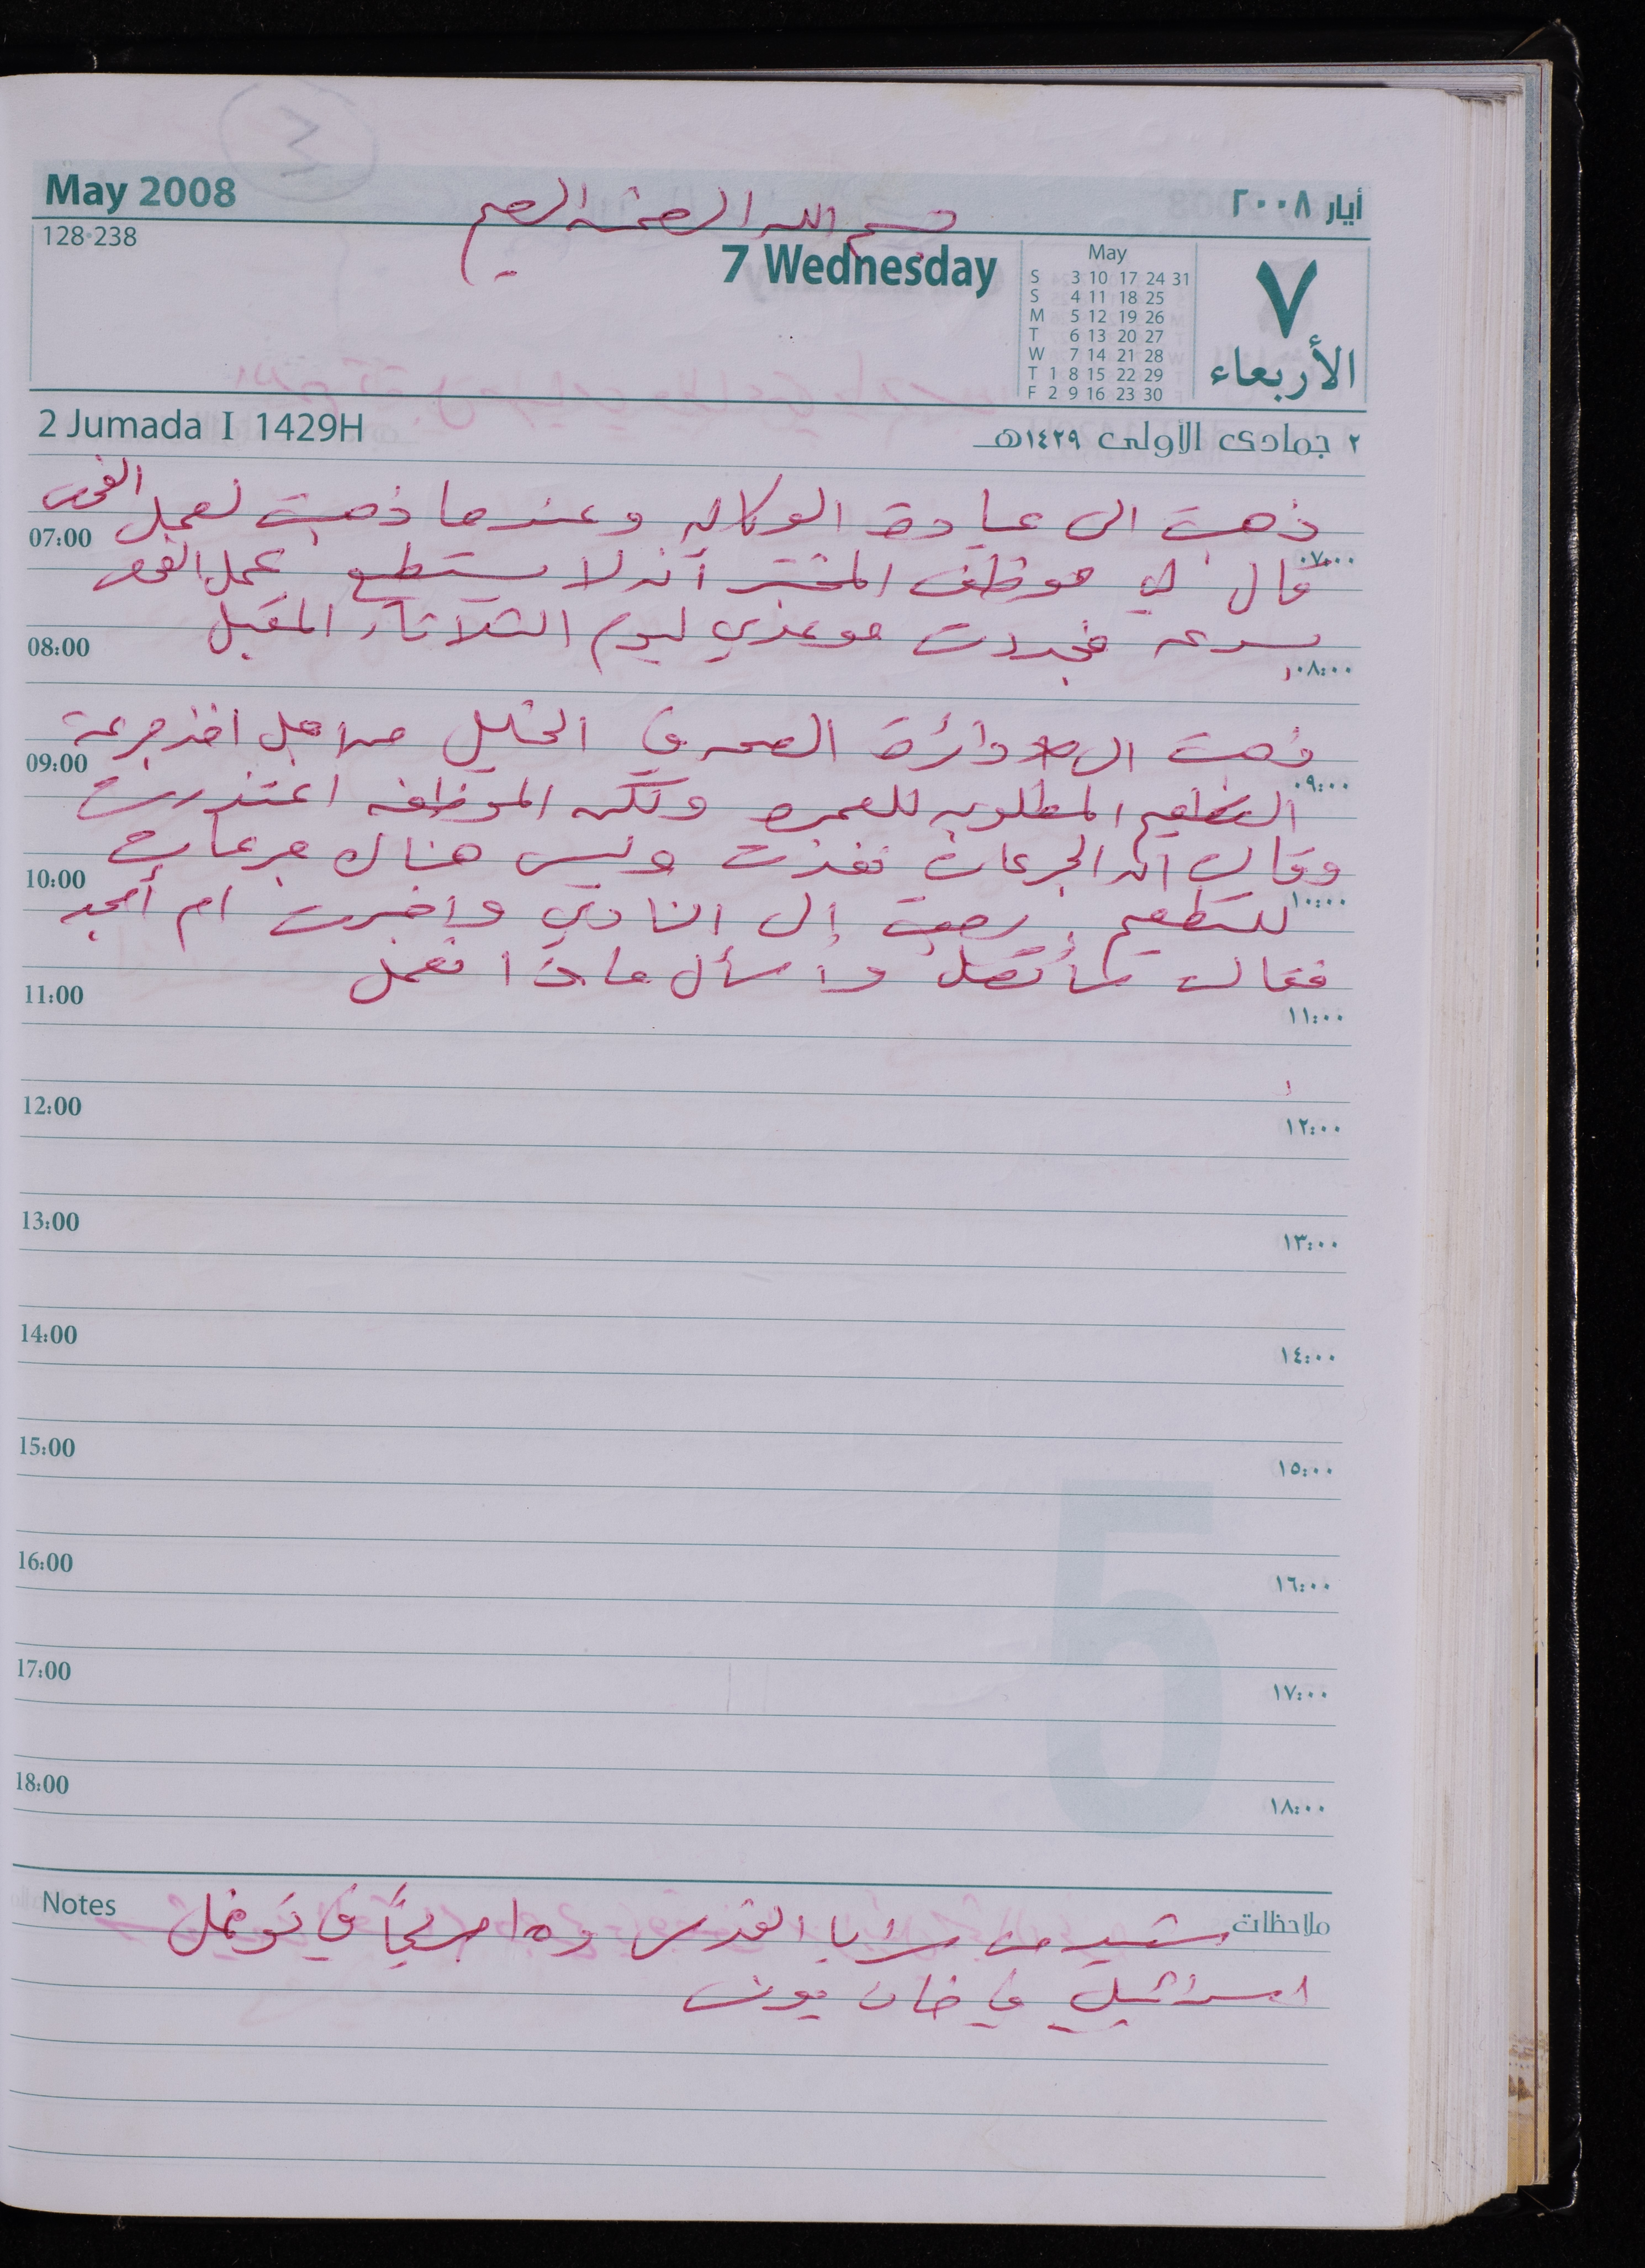 May 2008
أيار ٢٠٠٨
بسم الله الرحمن الرحيم
128-238
7 Wednesday
May
S 3 10 17 24 31
S 4 11 18 25
M 5 12 19 26
T 6 13 20 27
W 7 14 21 28
T 1 8 15 22 29
F 2 9 16 23 30
٧
الأربعاء
2 Jumada I 1429H
٢ جمادى الأولى ١٤٢٩هـ
ذهبت الى عيادة الوكاله وعندما ذهبت لعمل الفحص
07:00 ٠٧:٠٠
قال لي موظف المختبر أنه لا يستطيع عمل الفحص
بسرعه فجددت موعدي ليوم الثلاثاء المقبل
08:00 ٠٨:٠٠
ذهبت الى دائرة الصحه في الخليل من اجل اخذ جرعة
09:00 ٠٩:٠٠
التطعيم المطلوبه للعمره ولكن الموظفه اعتذرت
وقالت ان الجرعات نفذت وليس هناك جرعات
10:00 ١٠:٠٠
للتطعيم . رجعت إلى النادي واخبرت ام أمجد
فقالت سأتصل وأسأل ماذا نعمل
11:00 ١١:٠٠
12:00 ١٢:٠٠
13:00 ١٣:٠٠
14:00 ١٤:٠٠
15:00 ١٥:٠٠
16:00 ١٦:٠٠
5
17:00 ١٧:٠٠
18:00 ١٨:٠٠
Notes
ملاحظات
شهيد من سرايا القدس و ٥ا جريحاً في توغل
اسرائيلي في خان يونس